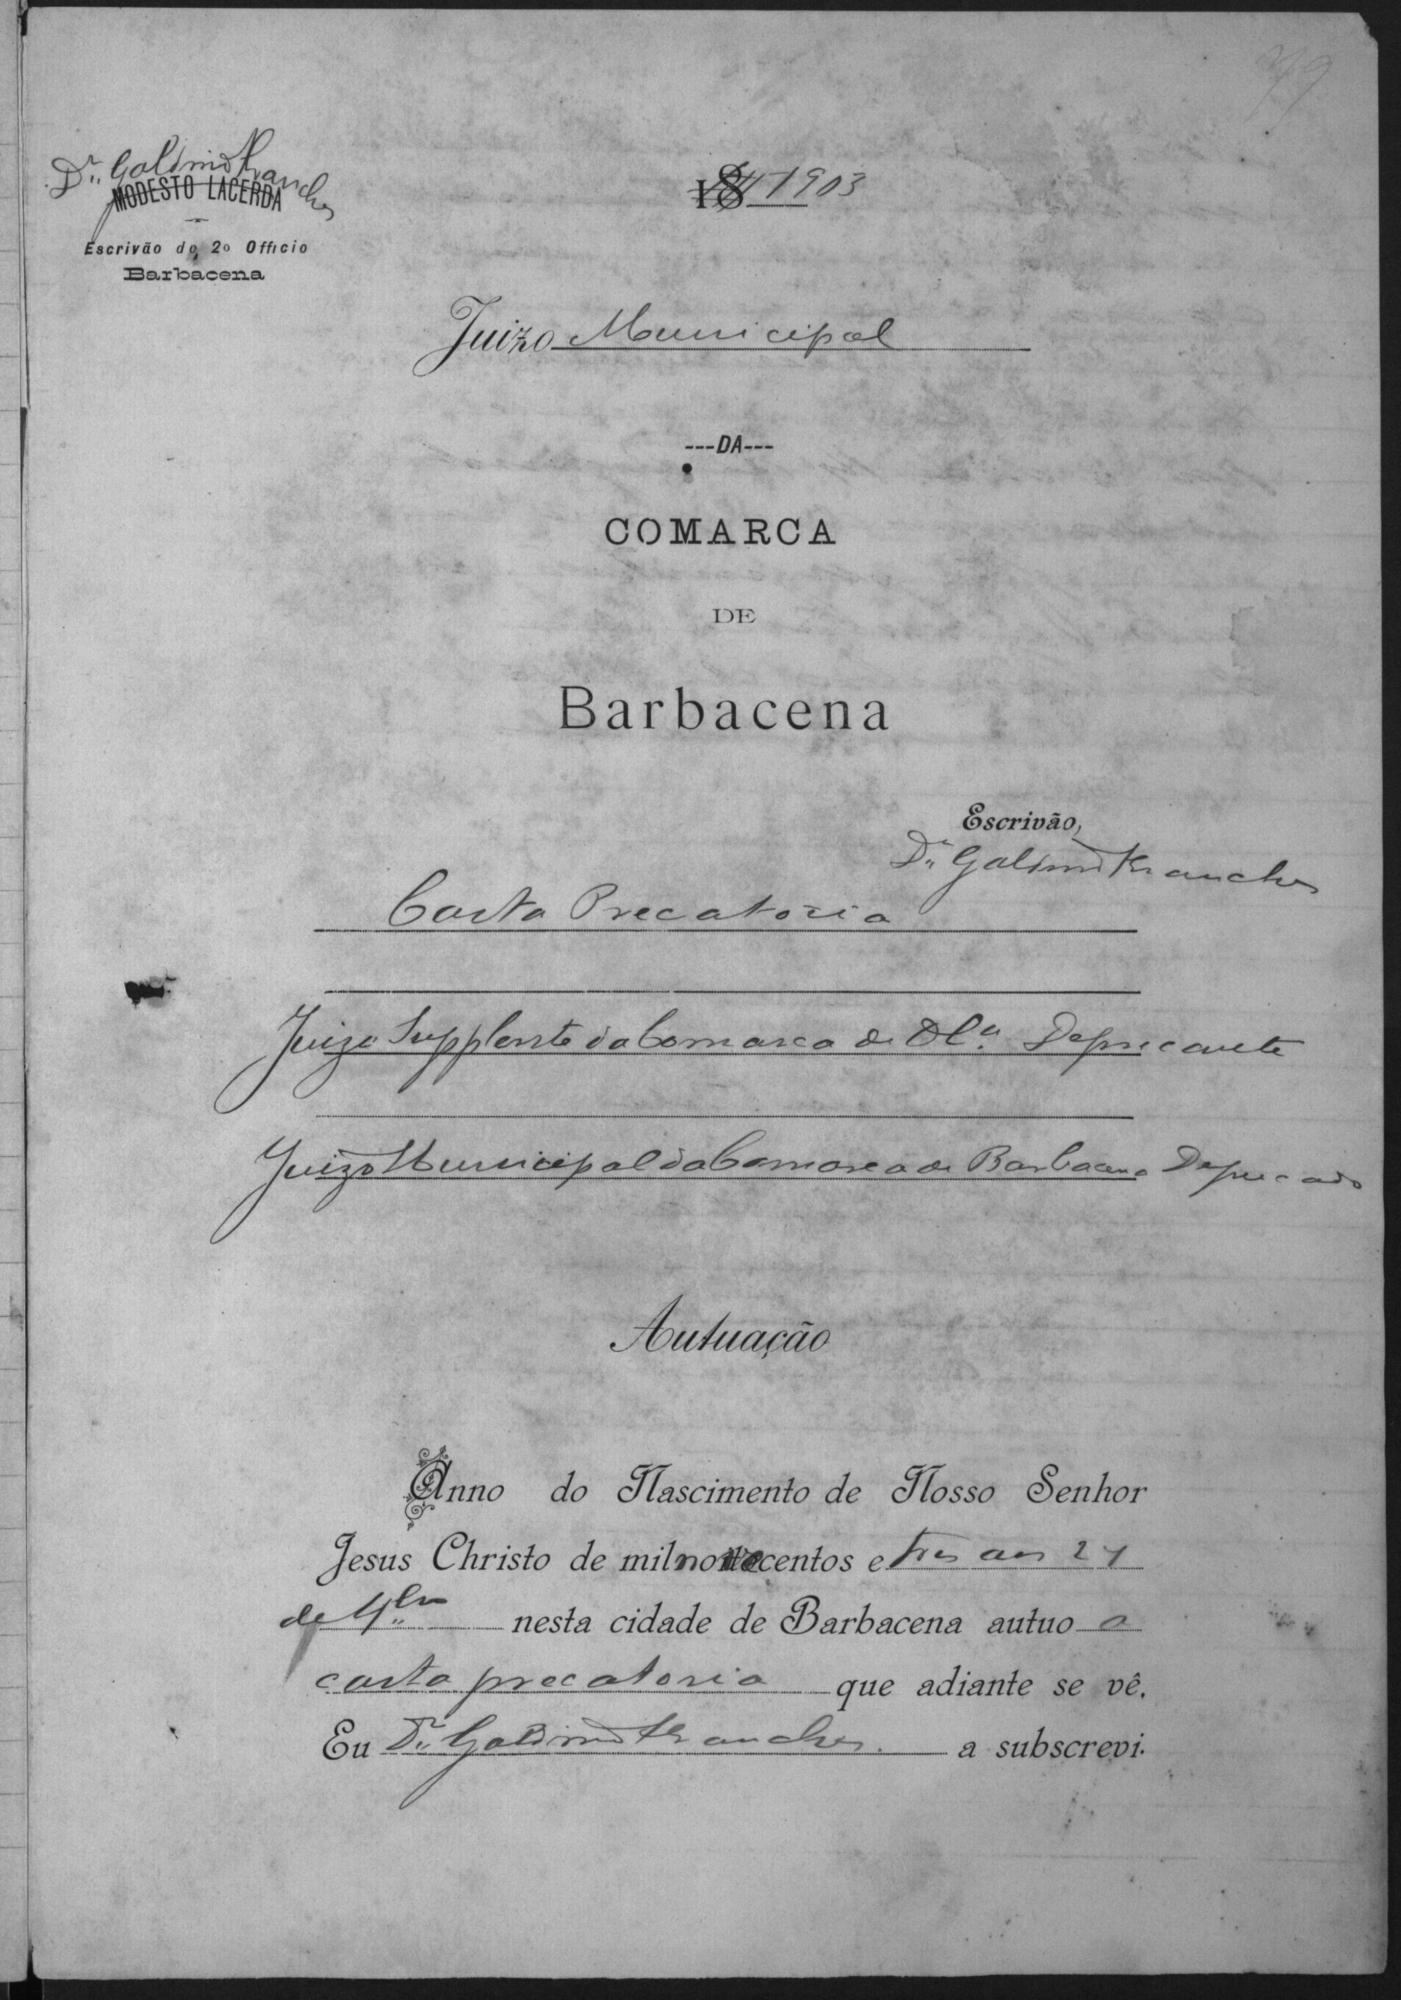 79
Dr. Galdino Abranches
MODESTO LACERDA
Escrivão do 2o Officio
Barbacena
18 1903
Juizo Municipal
---DA---
COMARCA
DE
Barbacena
Escrivão,
Dr. Galdino Abranches
Carta Precatoria
Juizo Supplente da Comarca de Deprecante
Juizo Municipal da Comarca de Barbacena Deprecado
Autuação
Anno do Nascimento de Nosso Senhor
Jesus Christo de mil novecentos e tres aos 24
de nesta cidade de Barbacena autuo a
carta precatoria que adiante se vê.
Eu Dr. Galdino Abranches a subscrevi.